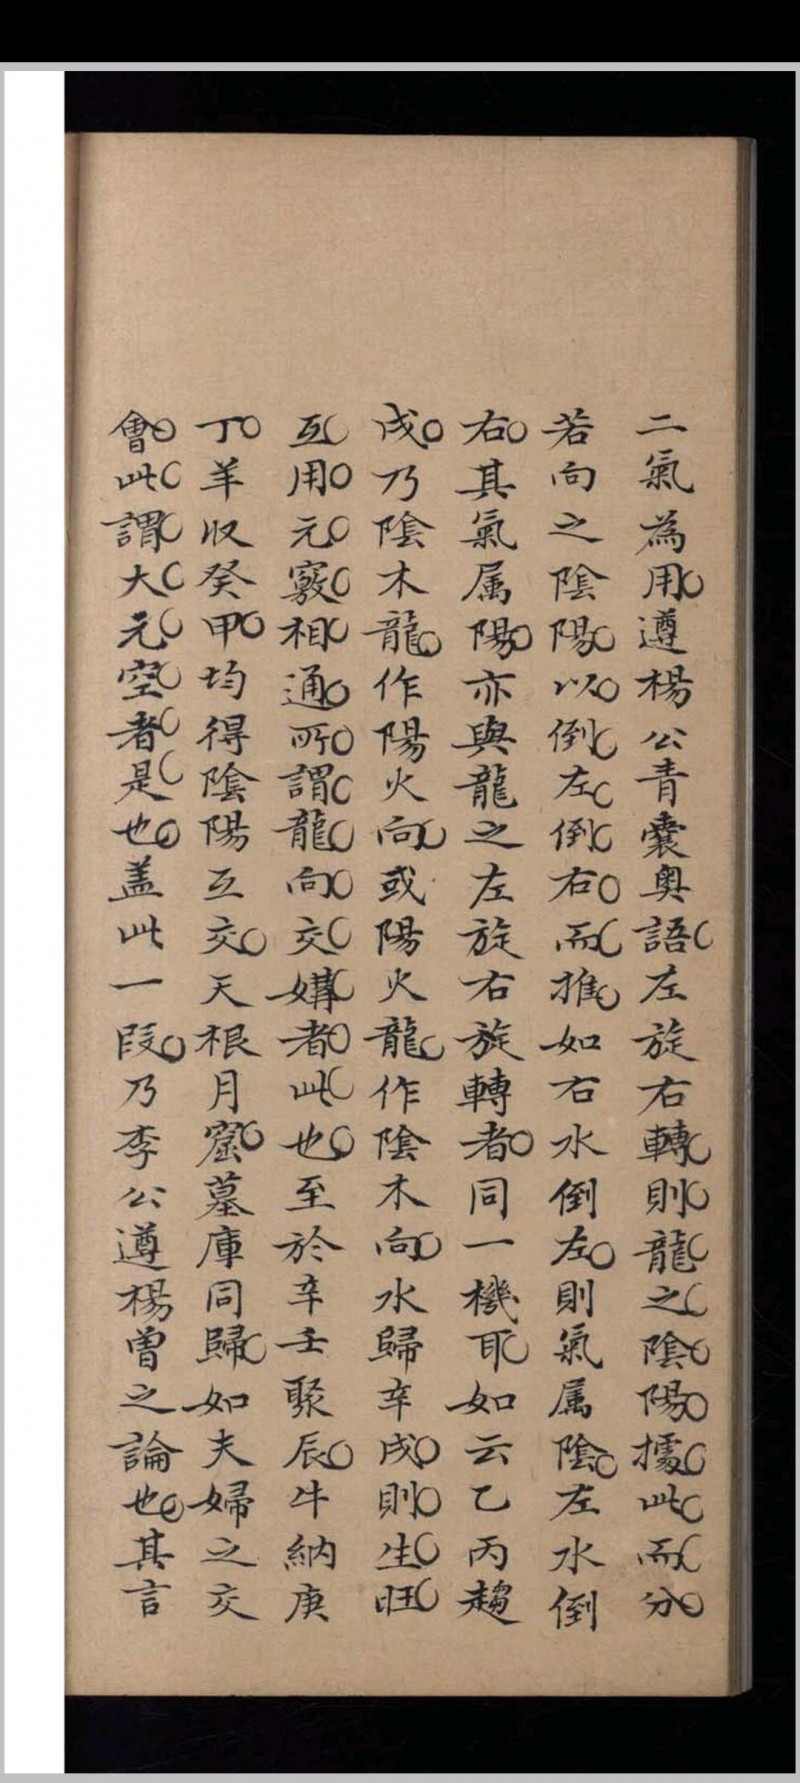 二氣為用遵楊公青囊奧語左旋右轉則龍之陰陽據此而分
若向之陰陽以倒左倒右而推如右水倒左則氣属陰左水倒
右其氣属陽亦與龍之左旋右旋轉者同一機耶如云乙丙趨
戍乃陰木龍作陽火向或陽火龍作陰木向水歸辛戍則生旺
互用元竅相通所謂龍向交媾者此也至於辛壬聚辰牛納庚
丁羊収癸甲均得陰陽互交天根月窟墓庫同歸如夫婦之交
會此謂大元空者是也盖此一叚乃李公遵楊曾之論也其言